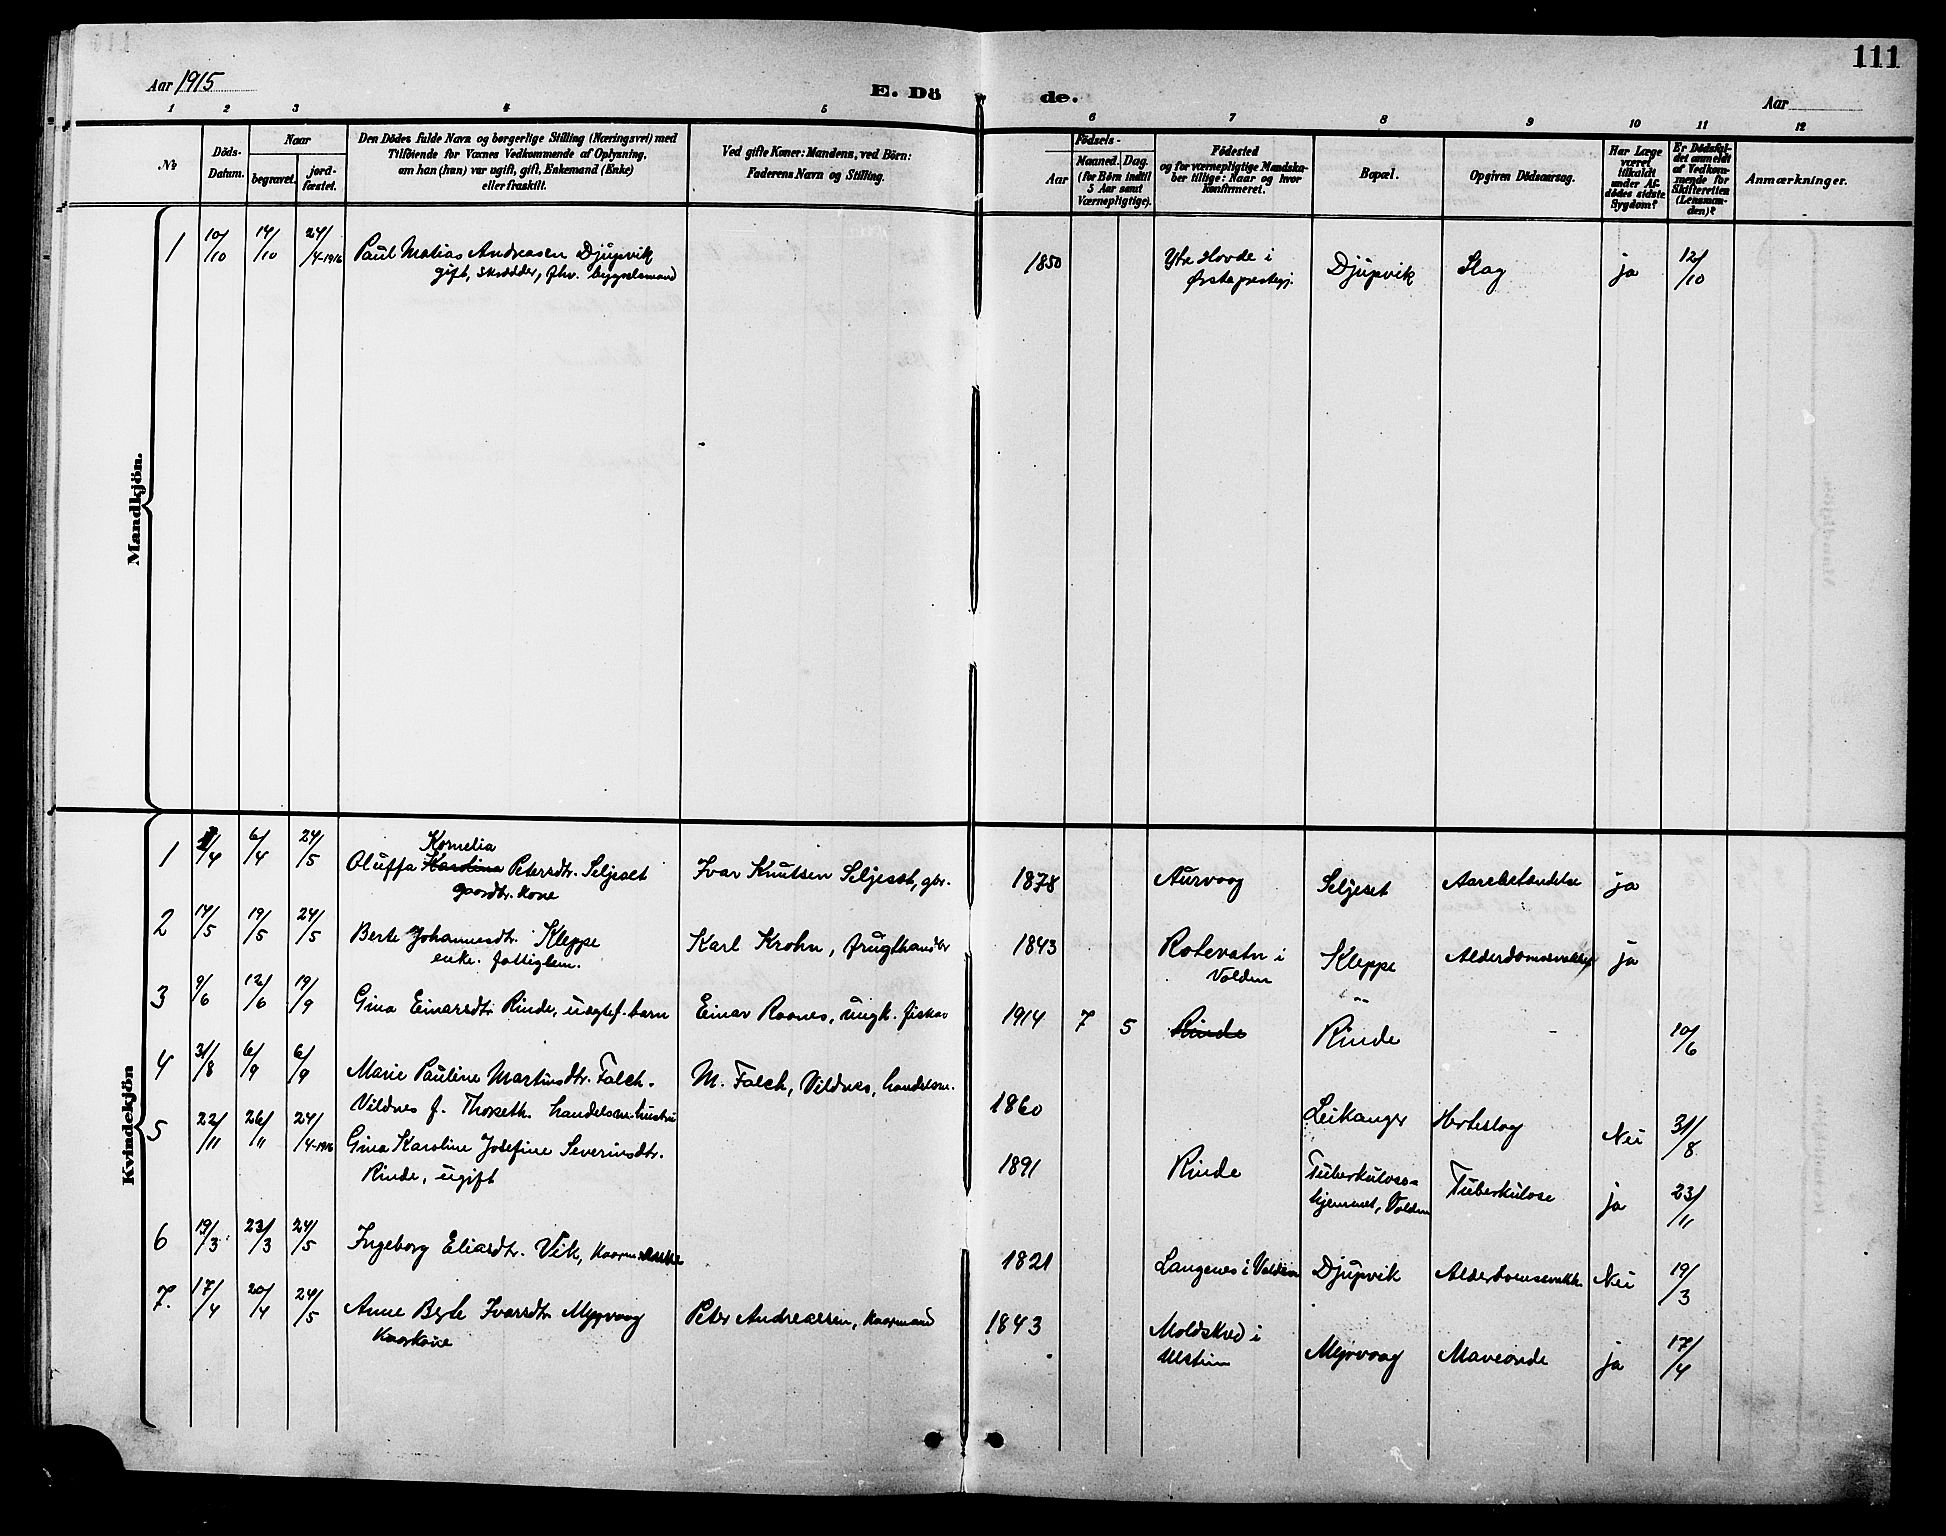 111
Aar 1915
E. Dö de.
Aar
1 2 3 4 5 6 7 8 9 10 11 12
No
Döds-Datum.
Naar
begravet.
jord-fæstet.
Den Dödes fulde Navn og borgerlige Stilling (Næringsvei) med
Tilföiende for Voxnes Vedkommende af Oplysning,
om han (hun) var ugift, gift, Enkemand (Enke)
eller fraskilt.
Ved gifte Koner: Mandens, ved Börn:
Faderens Navn og Stilling.
Födsels-
Aar
Maaned. Dag.
(for Börn indtil
5 Aar samt
Værnepligtige).
Födested
og for værnepligtige Mandska-
ber tillige: Naar og hvor
konfirmeret.
Bopæl.
Opgiven Dödsaarsag.
Har Læge
været
tilkaldt
under Af-
dödes sidste
Sygdom?
Er Dödsfal-
det anmeldt
af Vedkom-
mende for
Skifteretten
(Lensman-
den)?
Anmærkninger.
Mandkjön.
1 10/10 14/10 24/4-1916 Paul Matias Andreasen Djupvik 1850 Ytre Hovde i Djupvik Slag ja 12/10
gift, skrædder, fhv. bygselmand Ørsta prestegj.
Kvindekjön
Kornelia
1 1/4 6/4 24/5 Oluffa Karolina Petersdtr. Seljeset Ivar Knutsen Seljeset, gbr. 1878 Aurvaag Seljeset Aarebetændelse ja
gaardbr. kone
2 14/5 19/5 24/5 Berte Johannesdtr. Kleppe Karl Krohn, frugthandler 1843 Rotevatn i Kleppe ja
enke. fattiglem. Volden
3 9/6 12/6 19/9 Gina Einarsdtr. Rinde, uægtef. barn Einar Roones, ungk. fisker 1914 7 5 Rinde Rinde 10/6
4 31/8 6/9 6/9 Marie Pauline Martinsdtr. Falch. M. Falch, Vildnes, handelsm. 1860 Leikanger Herteslag Nei 31/8
Vildnes f. Thorseth. handelsm. hustru
5 22/11 26/11 24/4-1916 Gina Karoline Josefine Severinsdtr. 1891 Rinde Tuberkulose- Tuberkulose ja 23/11
Rinde, ugift hjemmet, Volden
6 19/3 23/3 24/5 Ingeborg Eliasdtr. Vik, 1821 Langenes i Volden Djupvik Alderdomssvakh. Nei 19/3
7. 17/4 20/4 24/5 Anne Berte Ivarsdtr. Myrvaag Peter Andreassen, kaarmand 1843 Moldskred i Myrvaag Maveonde ja 17/4
Kaarkone Ulstein